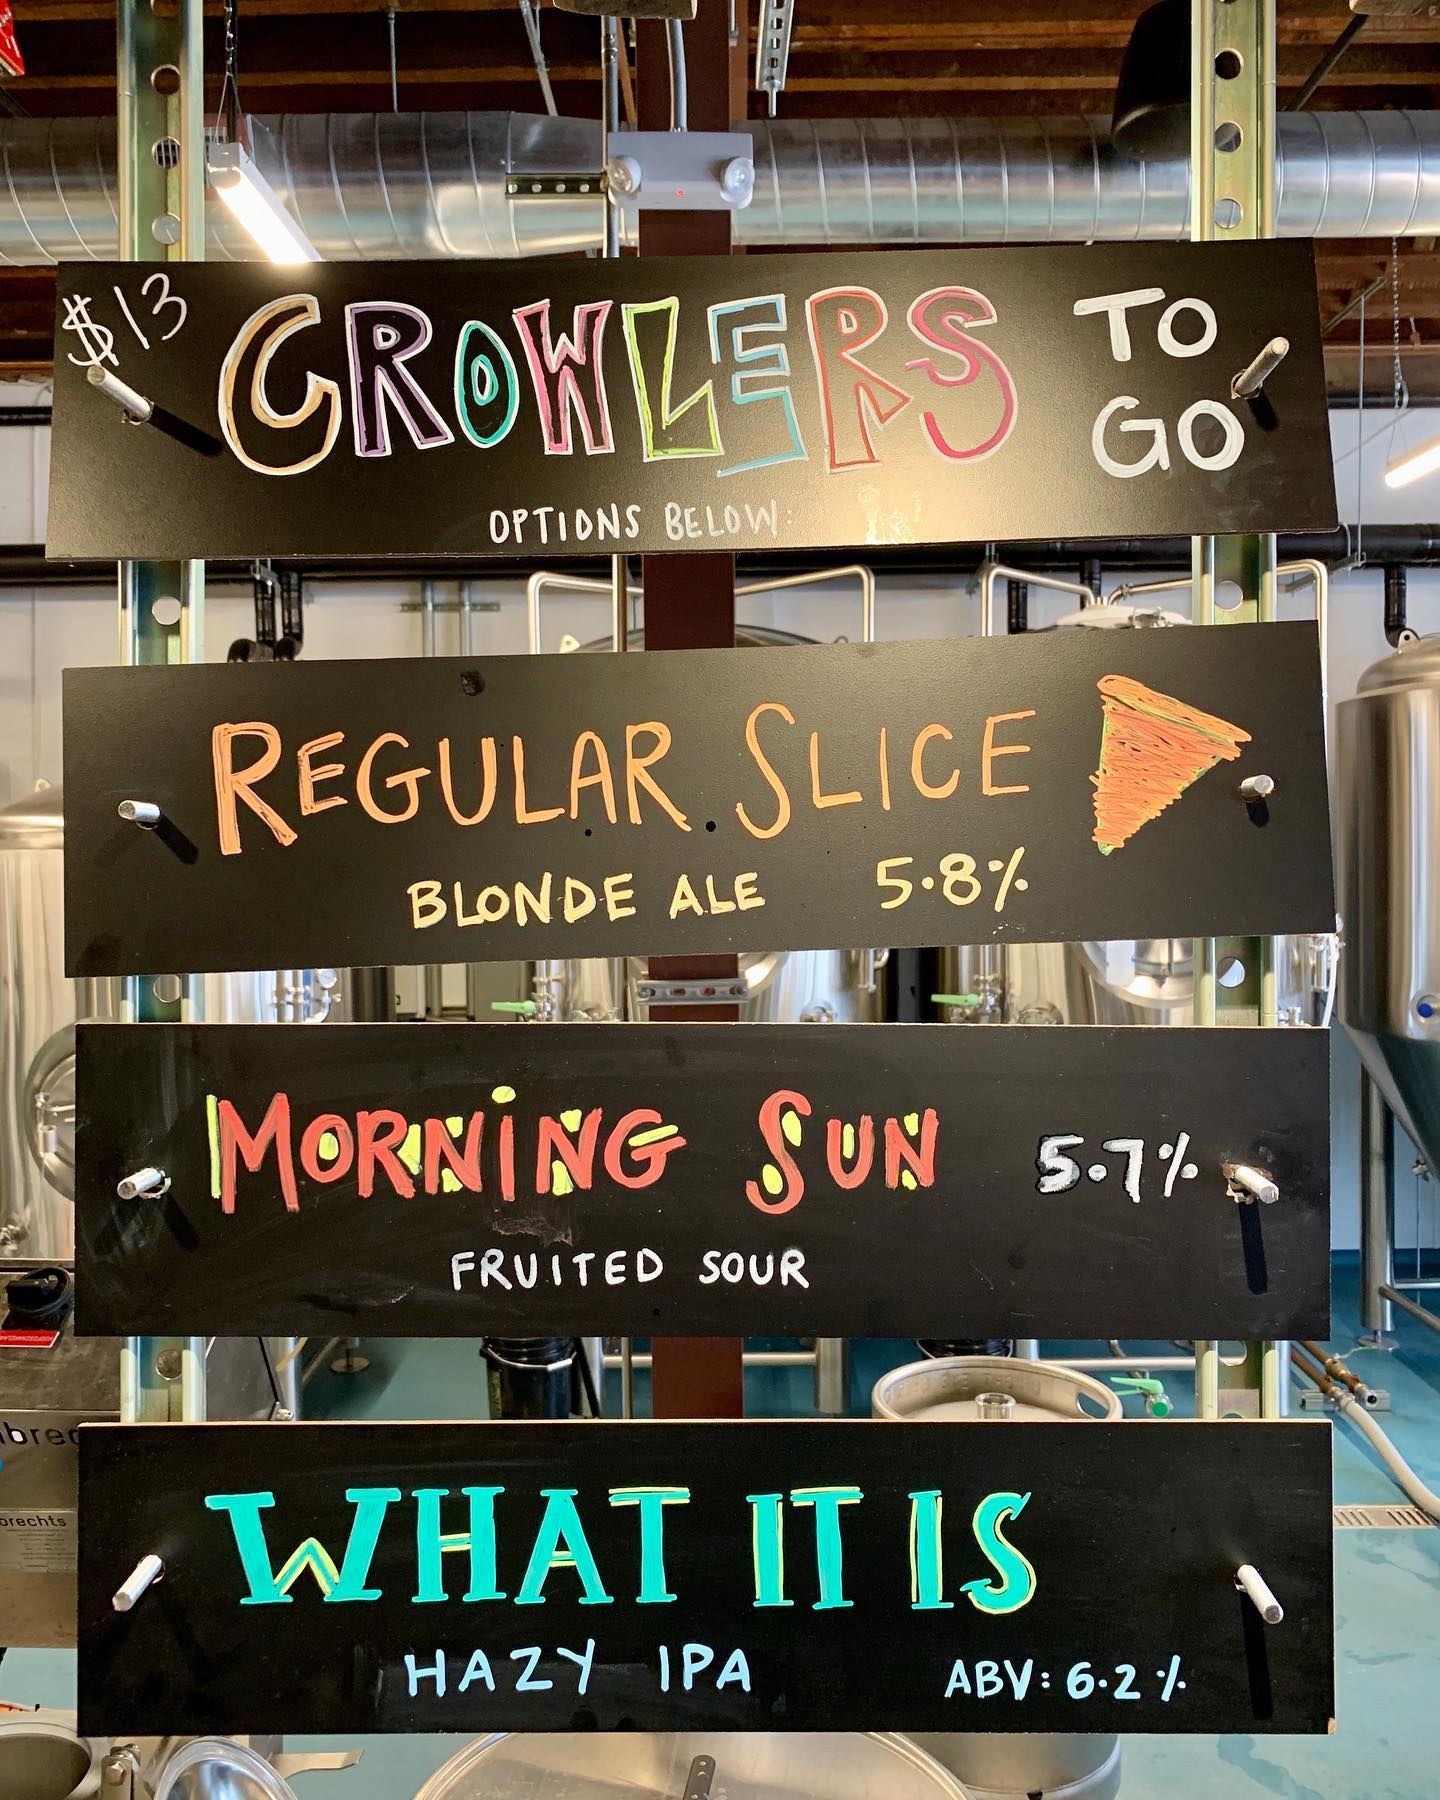 $13
CROWLERS
TO
GO
OPTIONS BELOW:
REGULAR SLICE
BLONDE ALE 5.8%
MORNiNG SUN 5.7%
FRUITED SOUR
WHAT IT IS
HAZY IPA ABV: 6.2%